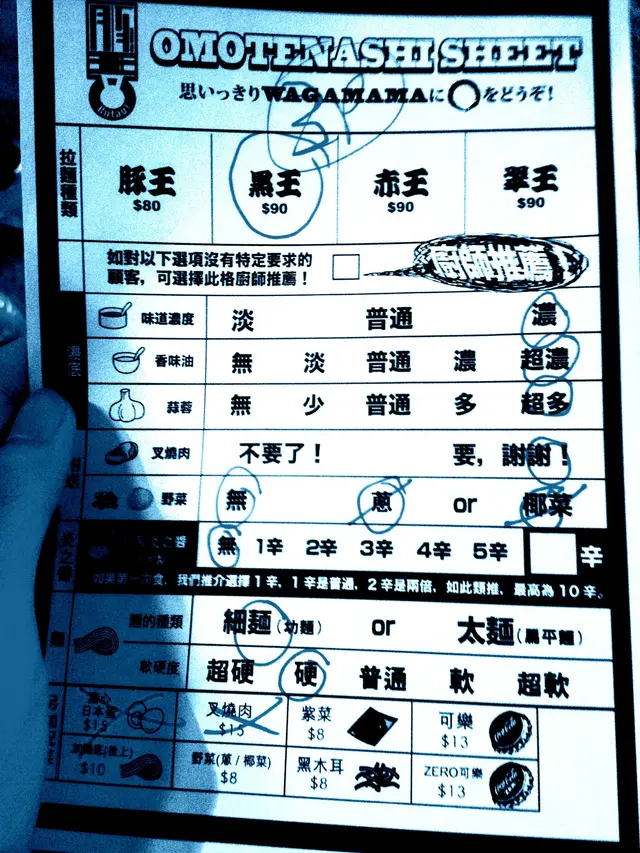 豚王
Butao
OMOTENASHI SHEET
思いっきりWAGAMAMAに◯をどうぞ！
拉麵種類
豚王 黑王 赤王 翠王
$80 $90 $90 $90
如對以下選項沒有特定要求的
顧客，可選擇此格廚師推薦！
廚師推薦
味道濃度 淡 普通 濃
香味油 無 淡 普通 濃 超濃
蒜蓉 無 少 普通 多 超多
叉燒肉 不要了！ 要，謝謝！
野菜 無 蔥 or 椰菜
無 1辛 2辛 3辛 4辛 5辛 辛
我們推介選擇1辛，1辛是普通，2辛是兩倍，如此類推，最高為10辛。
麵的種類 細麵（幼麵） or 太麵（扁平麵）
軟硬度 超硬 硬 普通 軟 超軟
叉燒肉 紫菜 可樂
$15 $15 $8 $13
野菜(蔥/椰菜) 黑木耳 ZERO可樂
$10 $8 $8 $13